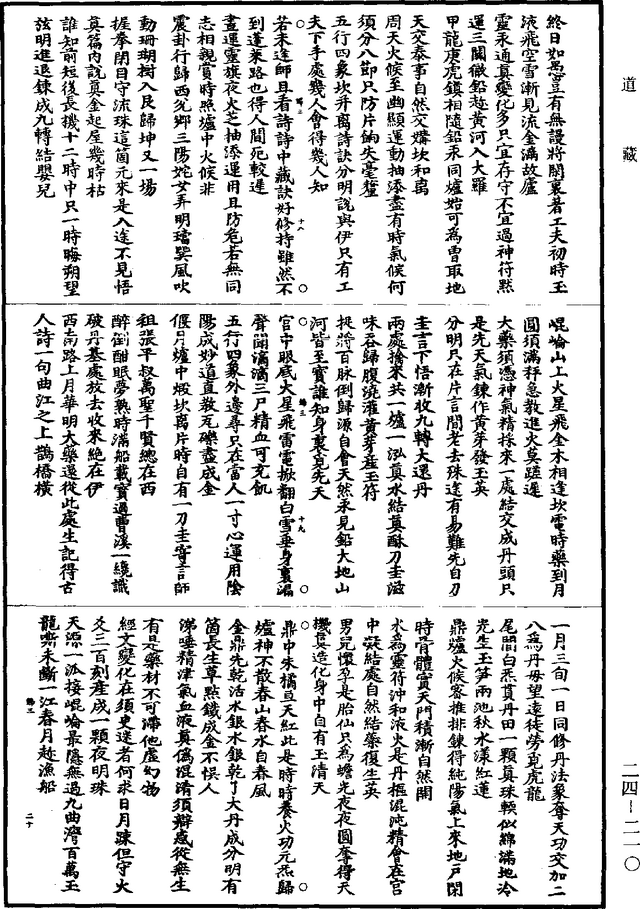 道藏
終日如愚豈有無謾將關裏著工夫初時玉
液飛空雪漸見流金滿故廬
靈汞通真變化多只宜存守不宜過神符黙
運三關徹鉛趂黃河入大羅
甲龍庚虎鎮相隨鉛汞同爐始可為曾取地
天交泰事自然交媾坎和离
周天火候至幽顯運動抽添盡有時氣候何
須分八節只防片餉失毫釐
五行四象坎并离詩訣分明說與伊只有工
夫下手處幾人會得幾人知
若未逢師且看詩詩中藏訣好修持雖然不
到蓬萊路也得人間死較遲
晝運靈旗夜火芝抽添運用且防危若無同
志相親覺時照爐中火候非
震卦行歸西兌鄉三陽姹女弄明璫巽風吹
動珊瑚樹入艮歸坤又一場
握拳閉目守流珠這箇元來是入途不見悟
真篇內說真金起屋幾時枯
誰知前短後長機十二時中只一時晦朔望
弦明進退鍊成九轉結嬰兒
崐崘山上火星飛金木相逢坎電時藥到月
圓須滿秤急教進火莫蹉遲
大藥須憑神氣精採來一處結交成丹頭只
是先天氣鍊作黃芽發玉英
分明只在片言間老去殊途有易難先自刀
圭言下悟漸收九轉大還丹
兩處擒來共一爐一泓真水結真酥刀圭滋
味吞歸腹澆灌黃芽產玉符
捉將百脉倒歸源自會天然汞見鉛大地山
河皆至寶誰知身裏覓先天
宮中眼底火星飛雷電掀翻白雪垂身裏漏
聲聞滴滴三尸精血可充飢
五行四象外邊尋只在當人一寸心運用陰
陽成妙道直教瓦礫盡成金
偃月爐中煅坎离片時自有一刀圭寄言師
祖張平叔萬聖千賢總在西
醉倒酣眠夢熟時滿船載寶過曹溪一纔識
破丹基處放去收來絕在伊
西南路上月華明大藥還從此處生記得古
人詩一句曲江之上鵲橋橫
一月三旬一日同修丹法象奪天功交加二
八為丹母望遠徒勞覓虎龍
尾閭白炁貫丹田一顆真珠輭似綿滿地冷
光生玉笋兩池秋水漾紅蓮
鼎爐火候密推排鍊得純陽氣上來地戶閉
時骨體實天門積漸自然開
水為靈符沖和液火是丹樞混沌精會在宮
中凝結處自然結藥復生英
男兒懷孕是胎仙只為蟾光夜夜圓奪得天
機真造化身中自有玉清天
鼎中朱橘亘天紅此是時時養火功元炁歸
爐神不散春山春水自春風
金鼎先乾活水銀水銀乾了大丹成分明有
箇長生草黙鐵成金不悞人
涕唾精津氣血液真偽混淆須辯惑從無生
有是藥材不可滯他虛幻物
經文變化在須臾迷者何求日月踈但守火
爻三百刻產成一顆夜明珠
天源一派接崐崘最隱無過九曲灣百萬玉
龍嘶未斷一江春月趂漁船
二四－二一〇